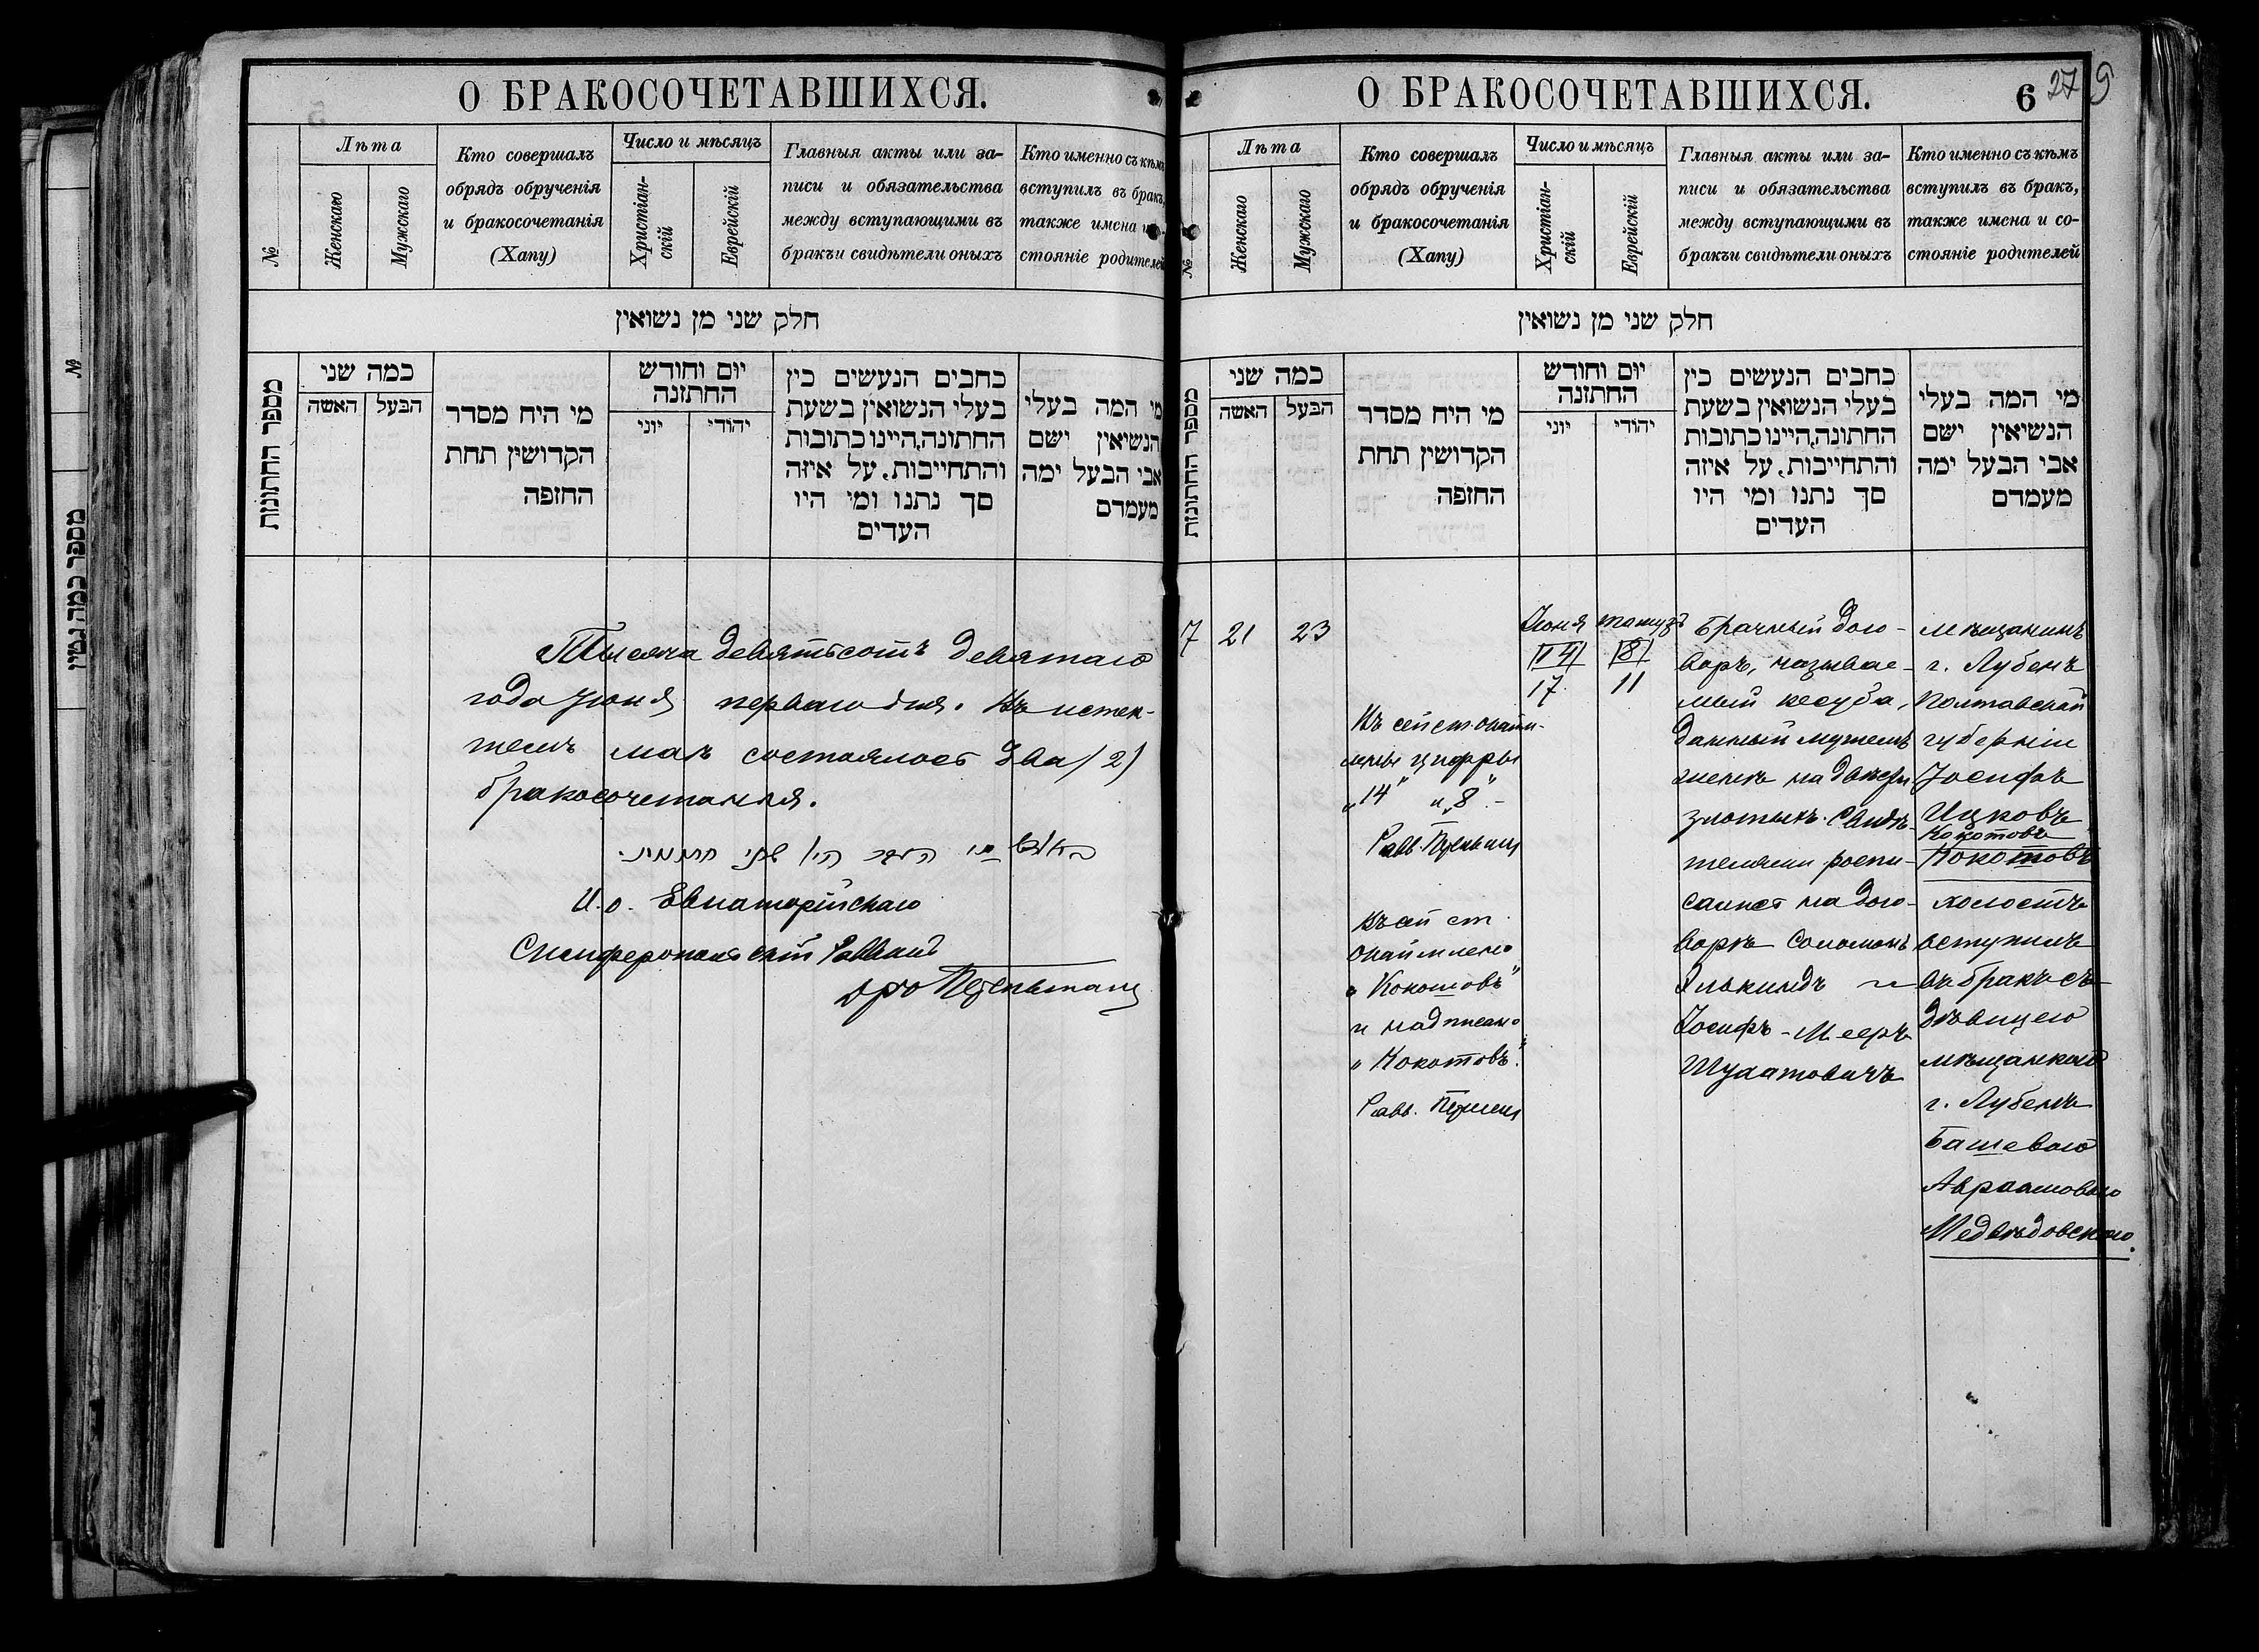 О БРАКОСОЧЕТАВШИХСЯ.
№
Лѣта
Женскаго
Мужскаго
Кто совершалъ
обрядъ обрученія
и бракосочетанія
(Хапу)
Число и мѣсяцъ
Христіан-
скій
Еврейскій
Главныя акты или за-
писи и обязательства
между вступающими въ
бракъи свидѣтели оныхъ
Кто именно съ кѣмъ
вступилъ въ бракъ,
также имена и
стояніе родителей
חלק שני מן נשואין
מספר החתונות
כמה שני
האשה
הבעל
מי היח מסדר
הקדושין תחת
החזפה
יום וחודש
החתזנה
יוני
יהודי
כחבים הנעשים כין
בעלי הנשואין בשעת
החתונה,היינו כתובות
והתחייבות, על איזה
סך נתנו ומי היו
העדים
מי המה בעלי
הנשיאין ישם
אבי הבעל ימה
מעמדם
Тысяча девятьсотъ девятаго
года Іюня перваго дня. Въ истек-
шемъ маѣ состоялось два /2/
бракосочетанія.
И. о. Евпаторійскаго
Симферопольскій Раввинъ
О БРАКОСОЧЕТАВШИХСЯ.
6
27
9
№
Лѣта
Женскаго
Мужскаго
Кто совершалъ
обрядъ обрученія
и бракосочетанія
(Хапу)
Число и мѣсяцъ
Христіан-
скій
Еврейскій
Главныя акты или за-
писи и обязательства
между вступающими въ
бракъи свидѣтели оныхъ
Кто именно съ кѣмъ
вступилъ въ бракъ,
также имена и со-
стояніе родителей
חלק שני מן נשואין
מספר החתונות
כמה שני
האשה
הבעל
מי היח מסדר
הקדושין תחת
החזפה
יום וחודש
החתזנה
יוני
יהודי
כחבים הנעשים כין
בעלי הנשואין בשעת
החתונה,היינו כתובות
והתחייבות, על איזה
סך נתנו ומי היו
העדים
מי המה בעלי
הנשיאין ישם
אבי הבעל ימה
מעמדם
7
21
23
Въ сей ст. окайм-
лены цифры
„14" и „8".-
Равв.
Въ сей ст.
окаймлено
„Кокошовъ"
и надписано
„Кокотовъ".
Равв.
Іюня
14
17
тамузъ
8
11
Брачный дого-
воръ, называе-
мый кесуба,
данный мужемъ
женѣ на двѣсти
злотыхъ. Свидѣ-
телями роспи-
сались на дого-
ворѣ Соломонъ
Элькиндъ и
Іосифъ-Мееръ
мѣщанинъ
г. Лубенъ
Полтавской
губерніи
Іосифъ
Ицковъ
Кокотовъ
Кокошовъ
холостъ
вступилъ
въ бракъ съ
дѣвицею
мѣщанкою
г. Лубенъ
Башевою
Авраамовою
Медвѣдовскою.